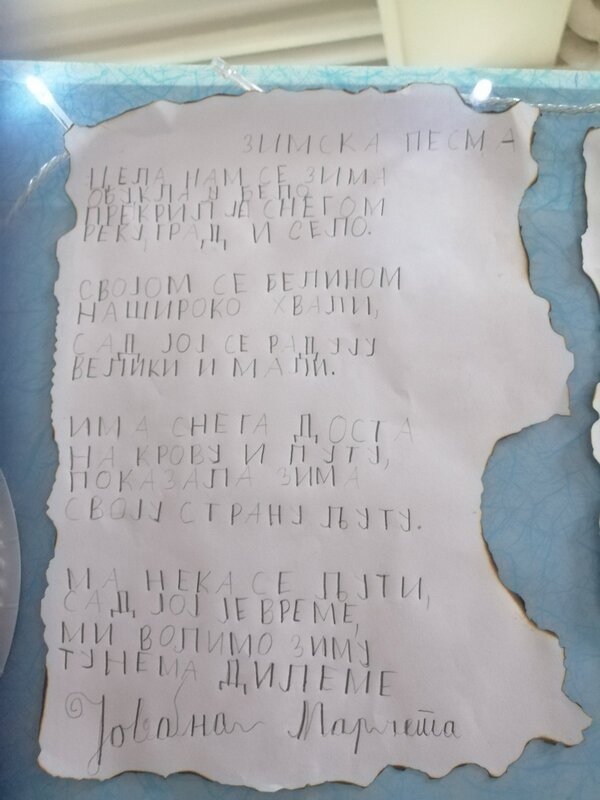 ЗИМСКА ПЕСМА
ЦЕЛА НАМ СЕ ЗИМА
ОБУКЛА У БЕЛО
ПРЕКРИЛА СНЕГОМ
РЕКУ, ГРАД И СЕЛО.
СВОЈОМ СЕ БЕЛИНОМ
НАШИРОКО ХВАЛИ,
САД ЈОЈ СЕ РАДУЈУ
ВЕЛИКИ И МАЛИ.
ИМА СНЕГА ДОСТА
НА КРОВУ И ПУТУ,
ПОКАЗАЛА ЗИМА
СВОЈУ СТРАНУ ЉУТУ.
МА НЕКА СЕ ЉУТИ,
САД ЈОЈ ЈЕ ВРЕМЕ,
МИ ВОЛИМО ЗИМУ
ТУ НЕМА ДИЛЕМЕ
Јована